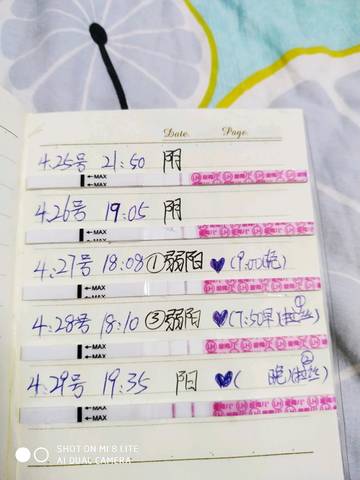 Date. Page.
4.25号 21:50 阴
←MAX LH
4.26号 19:05 阴
←MAX LH
4.27号 18:08 ①弱阳 (9:00晚)
←MAX LH
4.28号 18:10 ③弱阳 (7:50早)(拉丝) ①
←MAX LH
4.29号 19:35 阳 ( 晚)(拉丝) ②
←MAX LH
SHOT ON MI 8 LITE
AI DUAL CAMERA